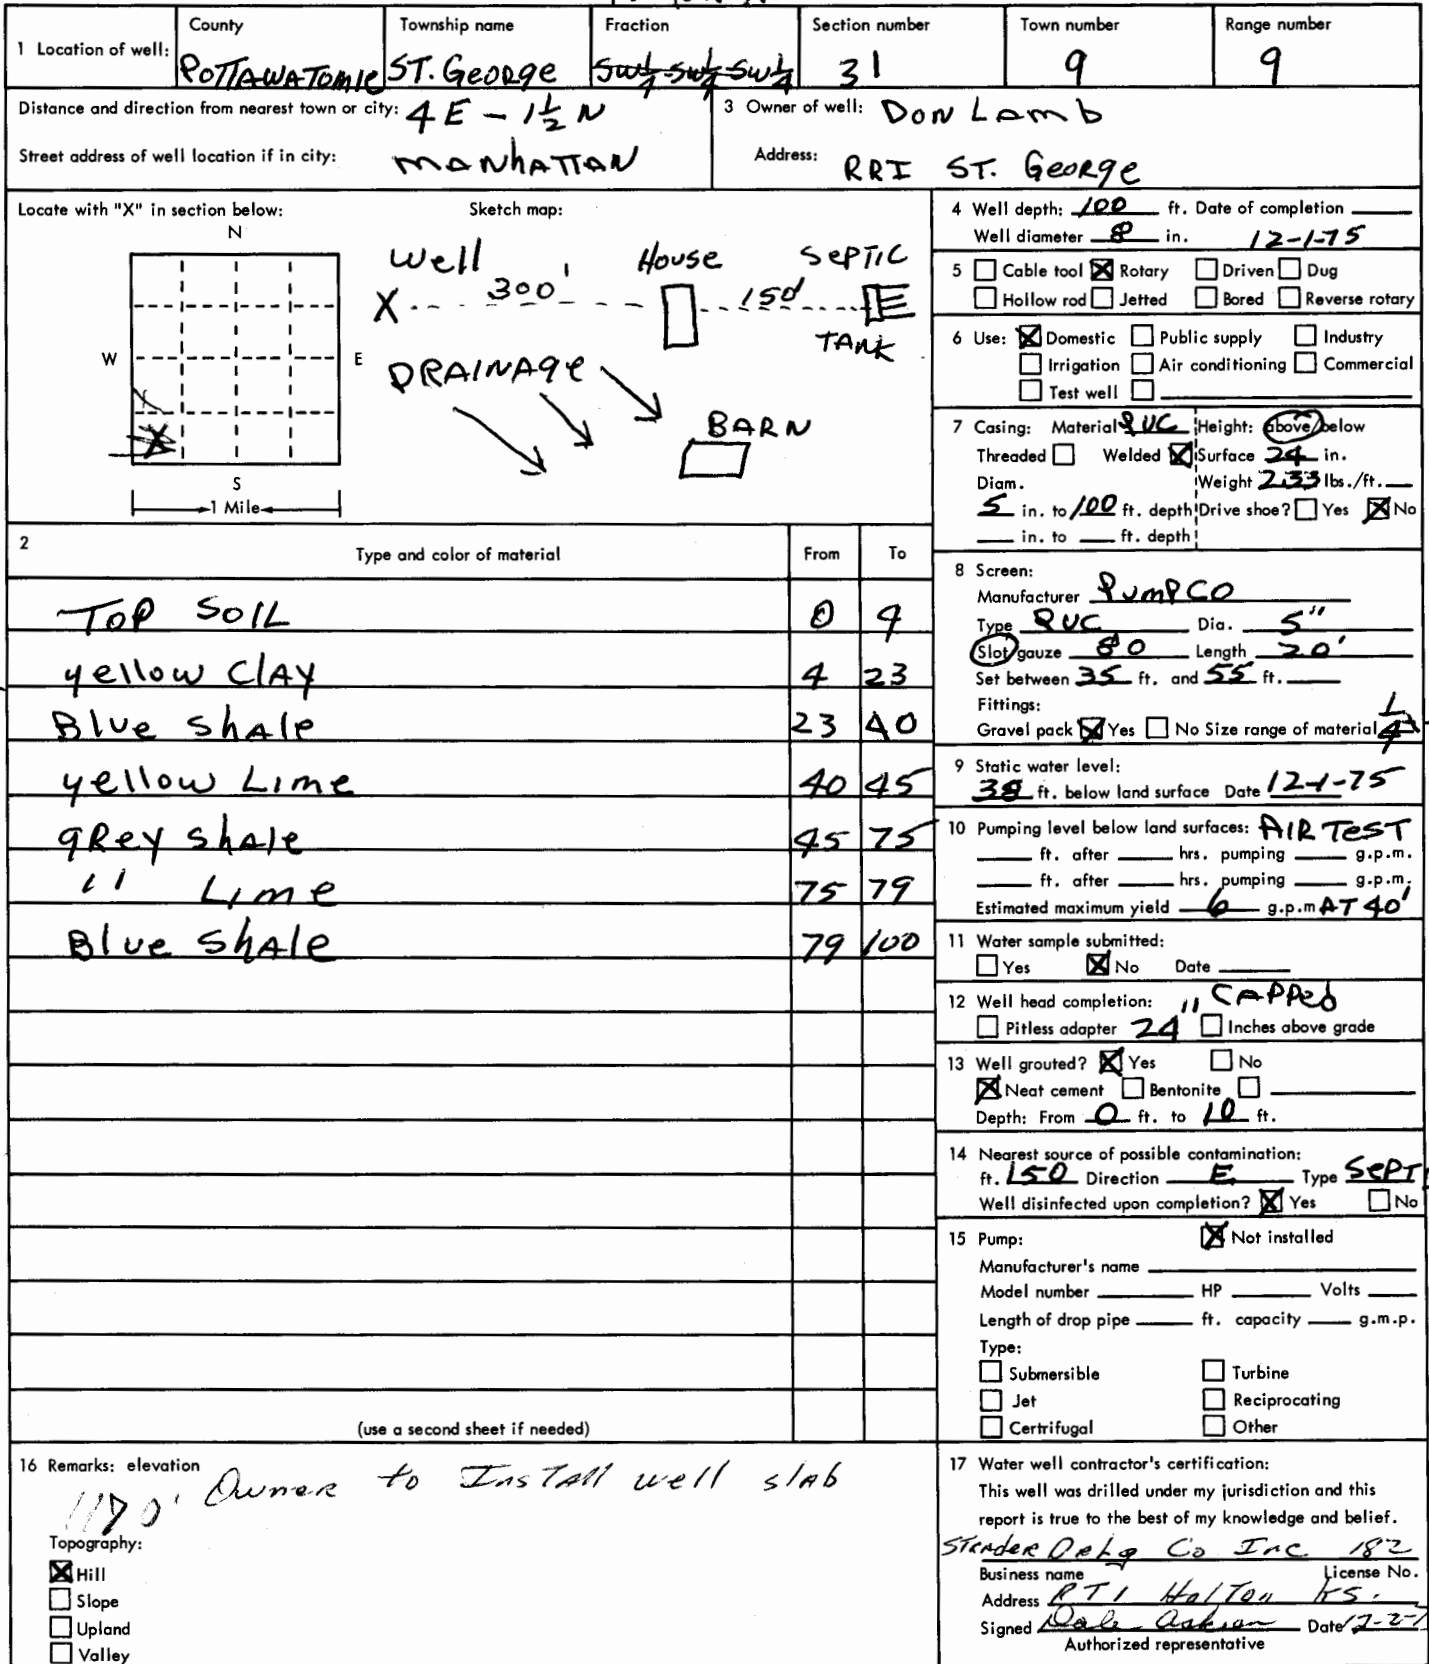 County Township name Fraction Section number Town number Range number
1 Location of well: POTTAWATOMIE ST. George SW 1/4 SW 1/4 SW 1/4 31 9 9
Distance and direction from nearest town or city: 4 E - 1 1/2 N
Street address of well location if in city: MANHATTAN
3 Owner of well: DON LAMB
Address: RR1 ST. George
Locate with "X" in section below:
N
W E
S
1 Mile
Sketch map:
Well House SEPTIC
X 300' 150'
TANK
DRAINAGE
BARN
2 Type and color of material From To
TOP SOIL 0 4
yellow CLAY 4 23
Blue ShAle 23 40
yellow Lime 40 45
gRey ShAle 45 75
" Lime 75 79
Blue ShAle 79 100
(use a second sheet if needed)
4 Well depth: 100 ft. Date of completion
Well diameter 8 in. 12-1-75
5 Cable tool X Rotary Driven Dug
Hollow rod Jetted Bored Reverse rotary
6 Use: X Domestic Public supply Industry
Irrigation Air conditioning Commercial
Test well
7 Casing: Material PVC Height: above/below
Threaded Welded X Surface 24 in.
Diam. Weight 2.33 lbs./ft.
5 in. to 100 ft. depth Drive shoe? Yes X No
in. to ft. depth
8 Screen:
Manufacturer PUMPCO
Type PVC Dia. 5"
Slot/gauze 80 Length 20'
Set between 35 ft. and 55 ft.
Fittings:
Gravel pack X Yes No Size range of material 1/4
9 Static water level:
38 ft. below land surface Date 12-1-75
10 Pumping level below land surfaces: AIR TEST
ft. after hrs. pumping g.p.m.
ft. after hrs. pumping g.p.m.
Estimated maximum yield 6 g.p.m AT 40'
11 Water sample submitted:
Yes X No Date
12 Well head completion: CAPPED
Pitless adapter 24" Inches above grade
13 Well grouted? X Yes No
X Neat cement Bentonite
Depth: From 0 ft. to 10 ft.
14 Nearest source of possible contamination:
ft. 150 Direction E Type SEPTI
Well disinfected upon completion? X Yes No
15 Pump: X Not installed
Manufacturer's name
Model number HP Volts
Length of drop pipe ft. capacity g.m.p.
Type:
Submersible Turbine
Jet Reciprocating
Certrifugal Other
16 Remarks: elevation Owner to Install well slab
Topography:
X Hill
Slope
Upland
Valley
17 Water well contractor's certification:
This well was drilled under my jurisdiction and this
report is true to the best of my knowledge and belief.
STRADER DRLG Co Inc 182
Business name License No.
Address RT1 Holton KS.
Signed Dale Date 12-2-7
Authorized representative